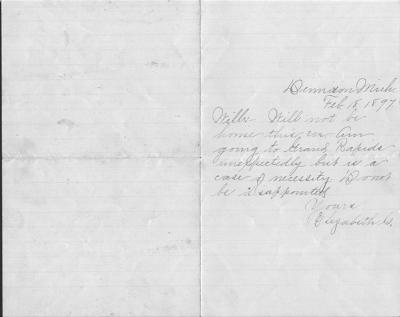 Dennison Mich
Feb 18, 1897
Will not be
home this, Am
going to Grand Rapids
unexpectedly but is a
case of necessity Do not
be disappointed
Yours
Elizabeth